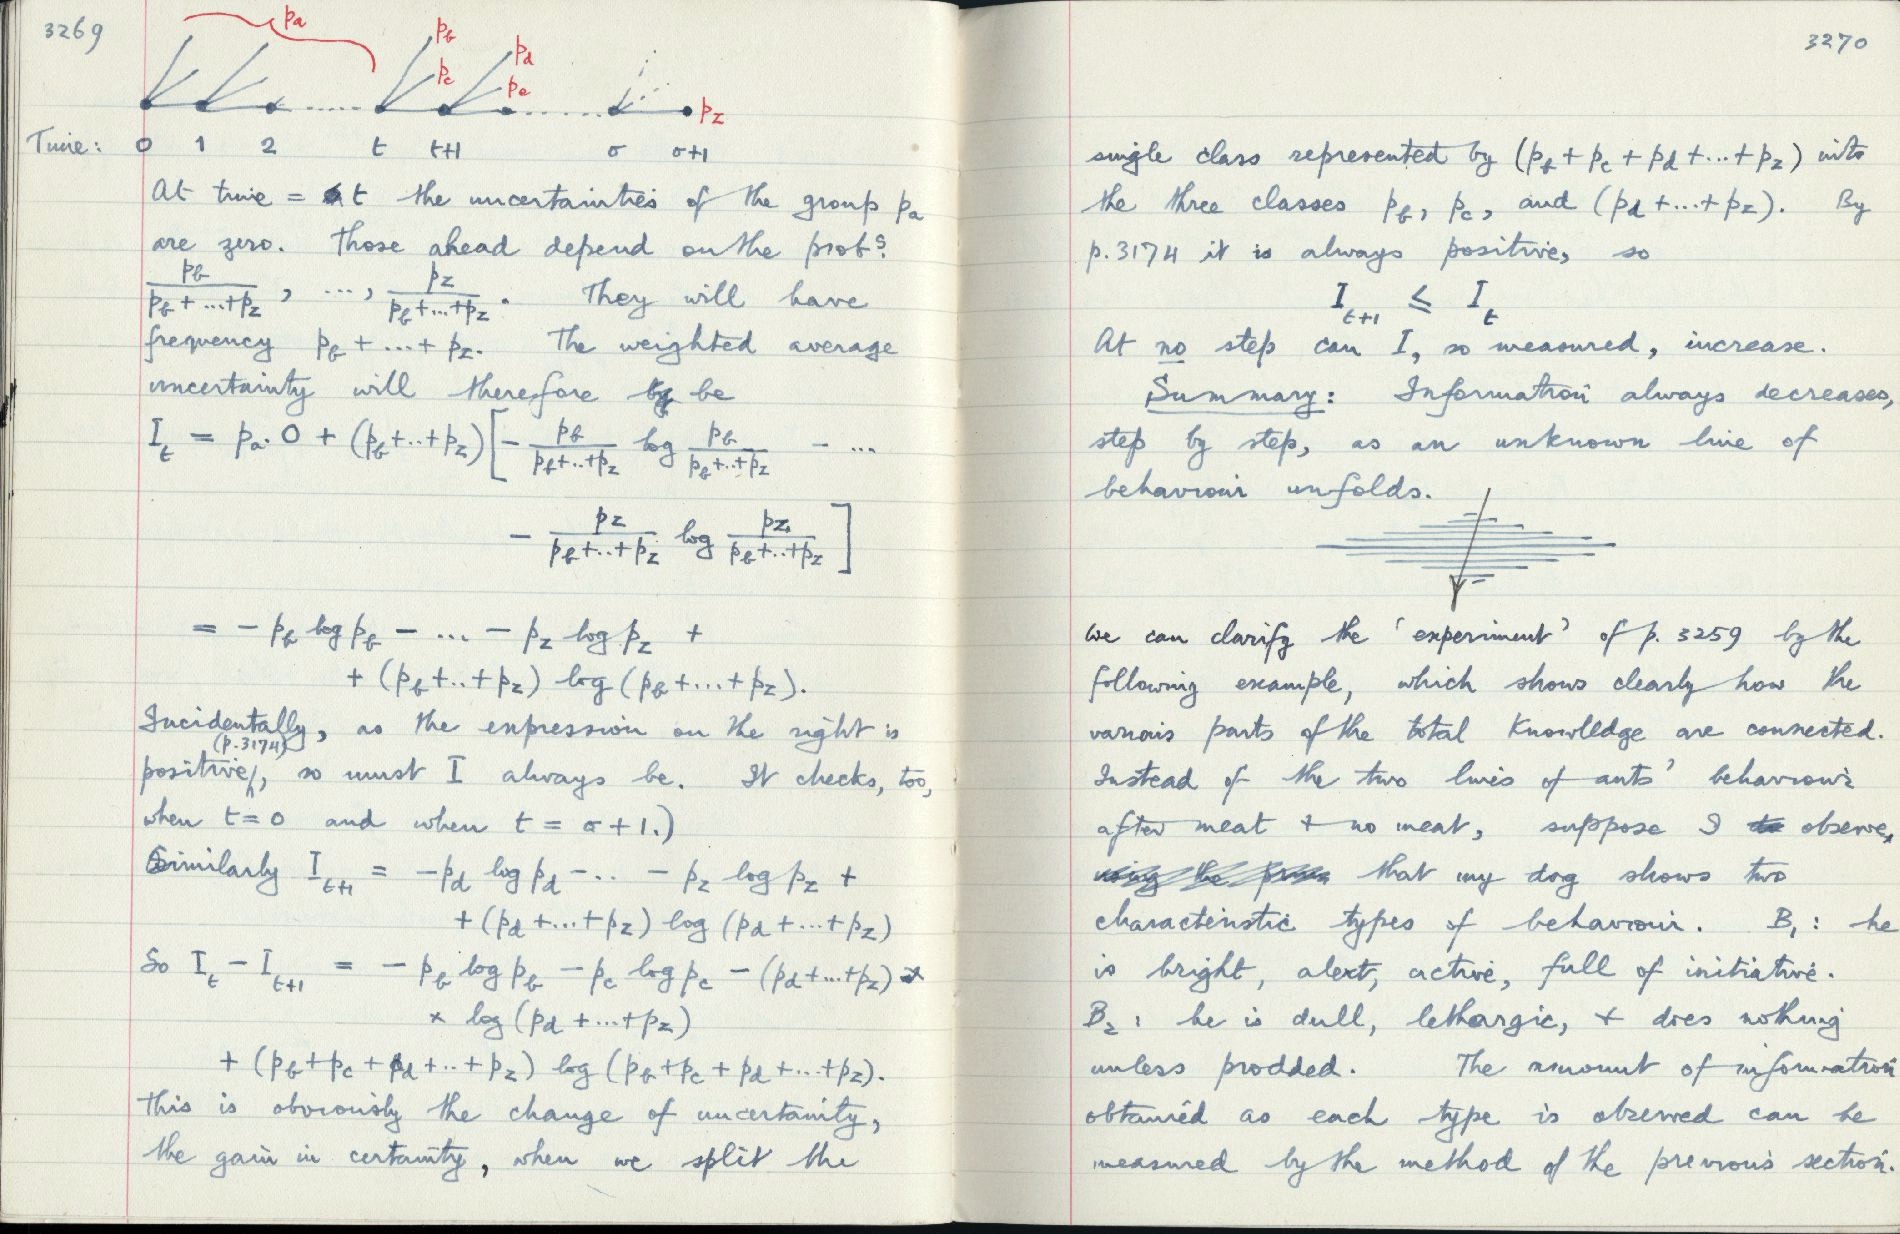 3269
pa
pb
pc
pd
pe
pz
Time: 0 1 2 t t+1 σ σ+1
At time = t the uncertainties of the group pa
are zero. Those ahead depend on the probs.
pb/(pb+...+pz), ..., pz/(pb+...+pz). They will have
frequency pb + ... + pz. The weighted average
uncertainty will therefore be
I_t = pa.0 + (pb+..+pz)[- pb/(pb+..+pz) log pb/(pb+..+pz) - ...
- pz/(pb+..+pz) log pz/(pb+..+pz)]
= - pb log pb - ... - pz log pz +
+ (pb+..+pz) log (pb+...+pz).
Incidentally, as the expression on the right is
(p.3174)
positive, so must I always be. It checks, too,
when t=0 and when t = σ+1.)
Similarly I_t+1 = -pd log pd - .. - pz log pz +
+ (pd+...+pz) log (pd+...+pz)
So I_t - I_t+1 = - pb log pb - pc log pc - (pd+...+pz) ×
× log (pd+...+pz)
+ (pb+pc+pd+..+pz) log (pb+pc+pd+...+pz).
This is obviously the change of uncertainty,
the gain in certainty, when we split the
3270
single class represented by (pb + pc + pd +...+ pz) into
the three classes pb, pc, and (pd+...+pz). By
p.3174 it is always positive, so
I_t+1 ≤ I_t
At no step can I, so measured, increase.
Summary: Information always decreases,
step by step, as an unknown line of
behaviour unfolds.
We can clarify the 'experiment' of p. 3259 by the
following example, which shows clearly how the
various parts of the total knowlledge are connected.
Instead of the two lines of ants' behaviour
after meat + no meat, suppose I observe,
that my dog shows two
characteristic types of behaviour. B1: he
is bright, alert, active, full of initiative.
B2: he is dull, lethargic, + does nothing
unless prodded. The amount of information
obtained as each type is observed can be
measured by the method of the previous section.